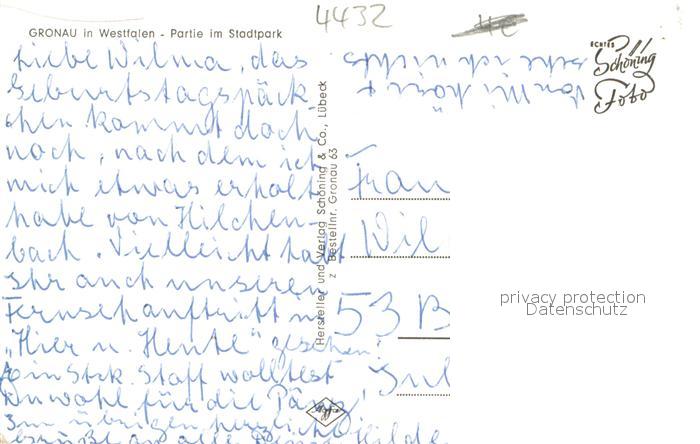 4432
GRONAU in Westfalen - Partie im Stadtpark
ECHTES
Schöning
Foto
Liebe Wilma, das
Geburtstagspäck
chen kommt doch
noch, nachdem ich
mich etwas erholt
habe von Hilchen-
bach. Vielleicht habt
Ihr auch unseren
Fernsehauftritt in
„Hier u. Heute" gesehen.
Ein Stck. Stoff wolltest
Du wohl für die
Im übrigen herzliche
Grüße an alle Deine Hilde
Von Mi hör +
sehe ich nichts
Hersteller und Verlag Schöning & Co., Lübeck
Z Bestellnr. Gronau 63
Frau
Wil
53 B
Agfa
privacy protection
Datenschutz